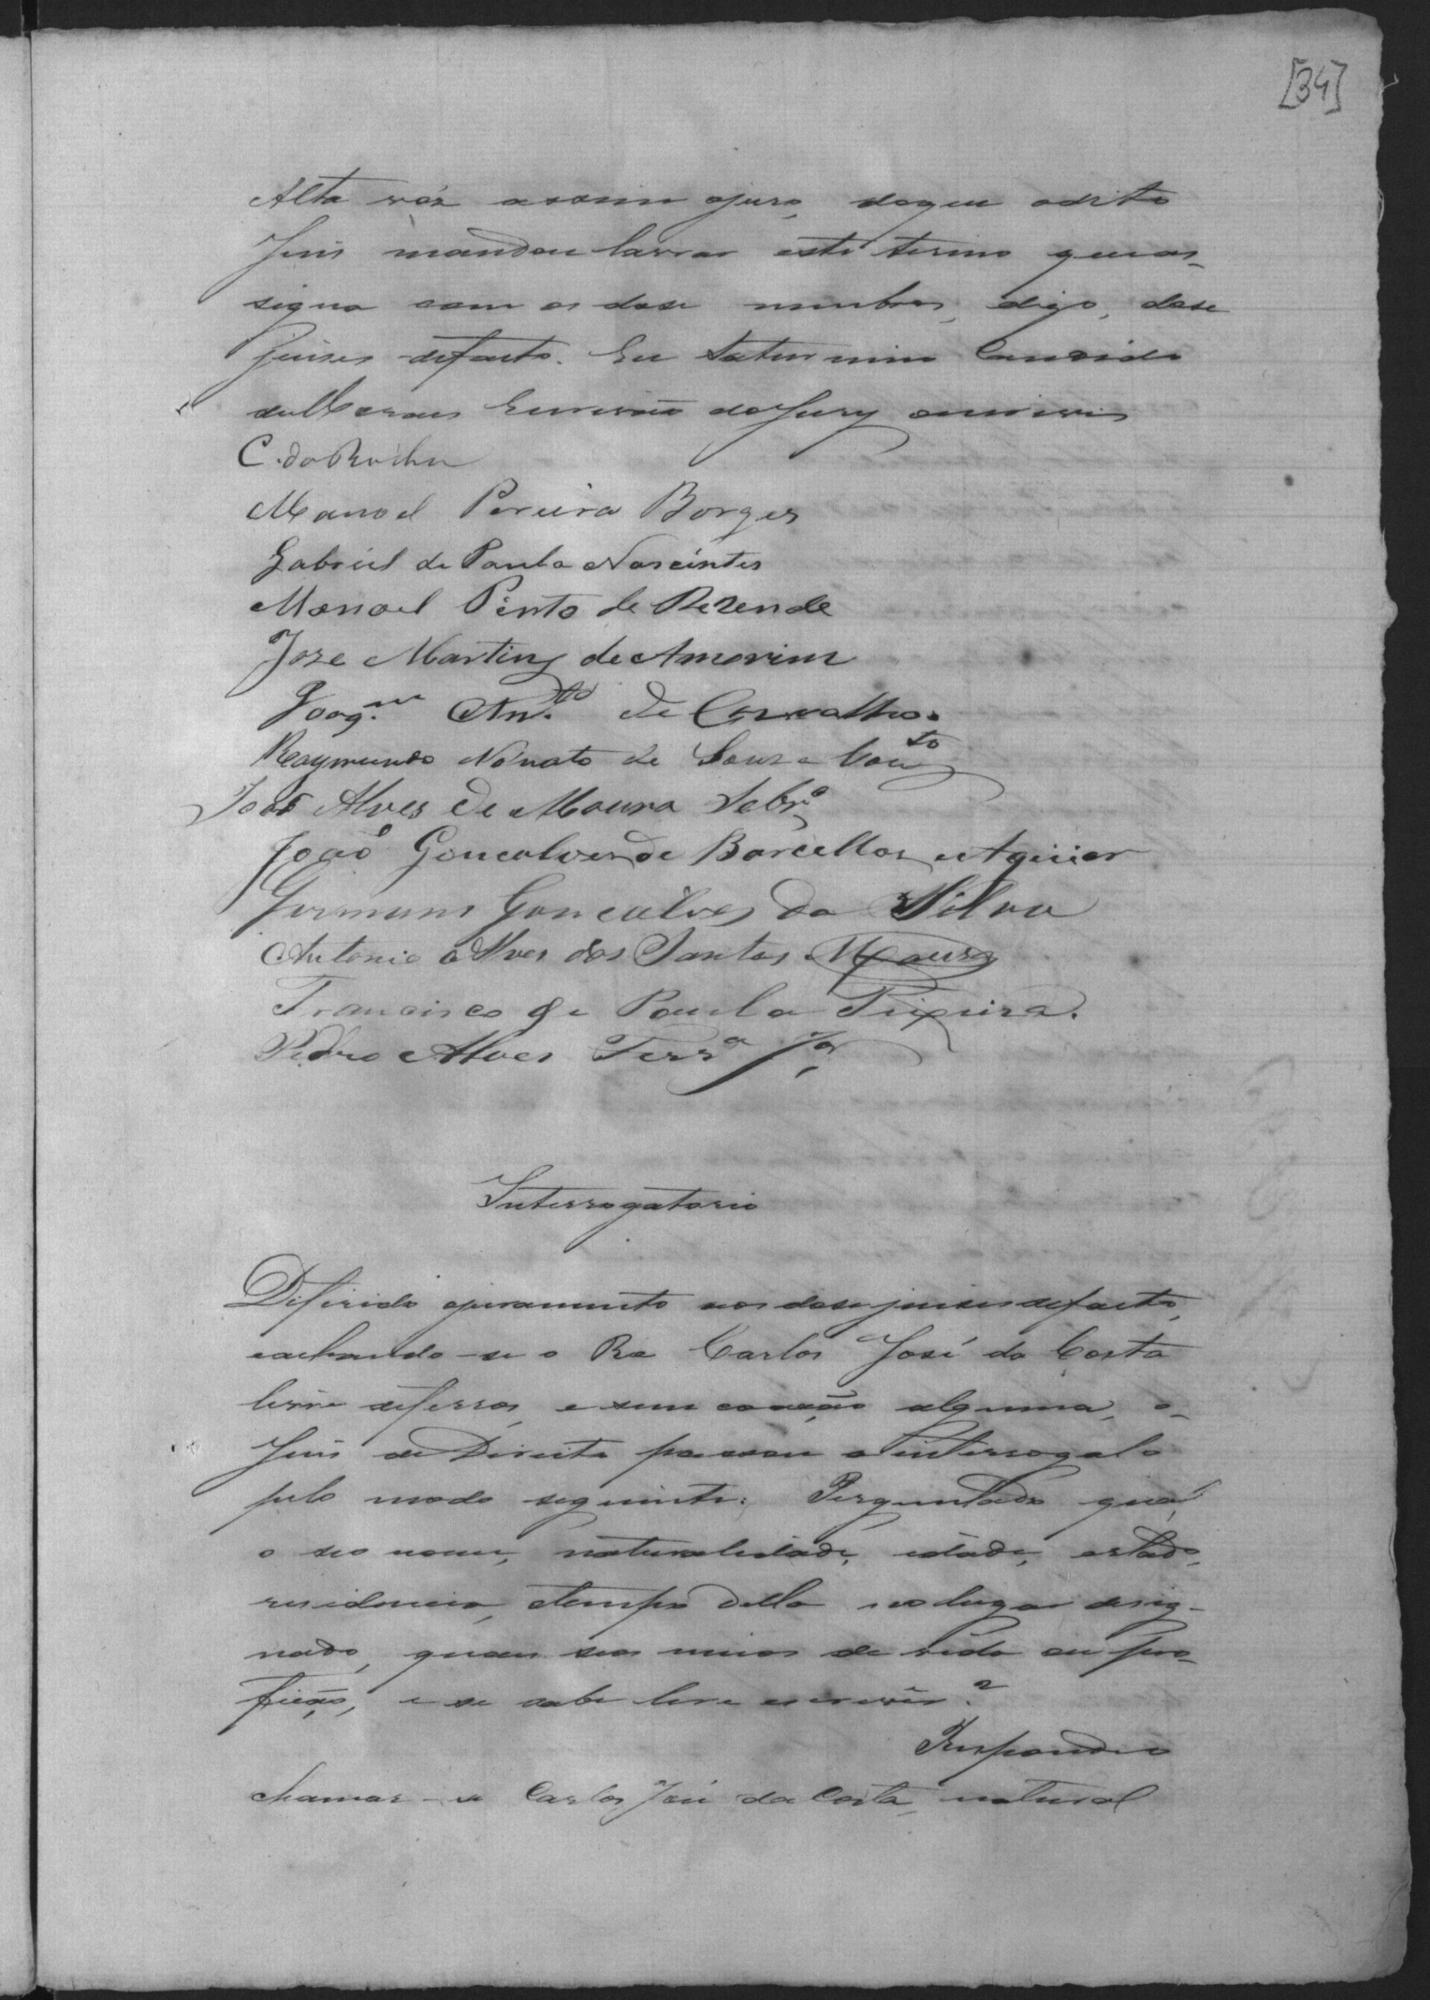 [34]
Alta vóz assim ojuro, doque odito
Juis mandou lavrar este termo queas-
signa com os dose membros, digo, dose
juises defacto. Eu Saturnino Candido
de Moraes Escrivão do Jury escrevi
C. da Rocha
Manoel Pereira Borges
Gabriel de Paula Nascintes
Manoel Pinto de Rezende
Joze Martins de Amorim
Joaqm. Anto. de Carvalho.
Raymundo Nonato de Souza Couto
José Alves de Moura Sobro
João Gonçalves de Barcellos e Aguiar
Germano Gonçalves da Silva
Antonio Alves dos Santos Moura
Francisco de Paula Teixeira.
Pedro Alves Ferra Jor
Interrogatorio
Diferido ojuramento aos dose juises defacto,
eachando-se o Reo Carlos José da Costa
livre deferros, e sem coacção alguma, o-
Juis de Direito passou a interrogalo
pelo modo seguinte: Perguntado qual
o seo nome, naturalidade, idade, estado,
residencia, etempo della no lugar desig-
nado, quaes seos meios de vida ou pro-
fição, e se sabe ler e escrever?
Respondeo
chamar-se Carlos José da Costa, natural